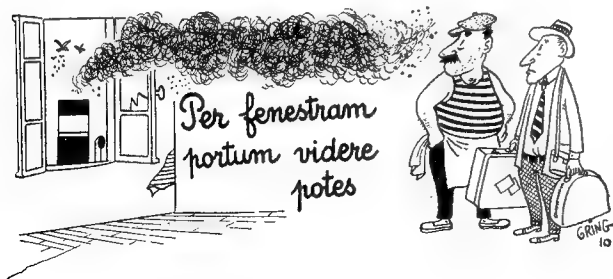 Per fenestram
portum videre
potes
GRING
10